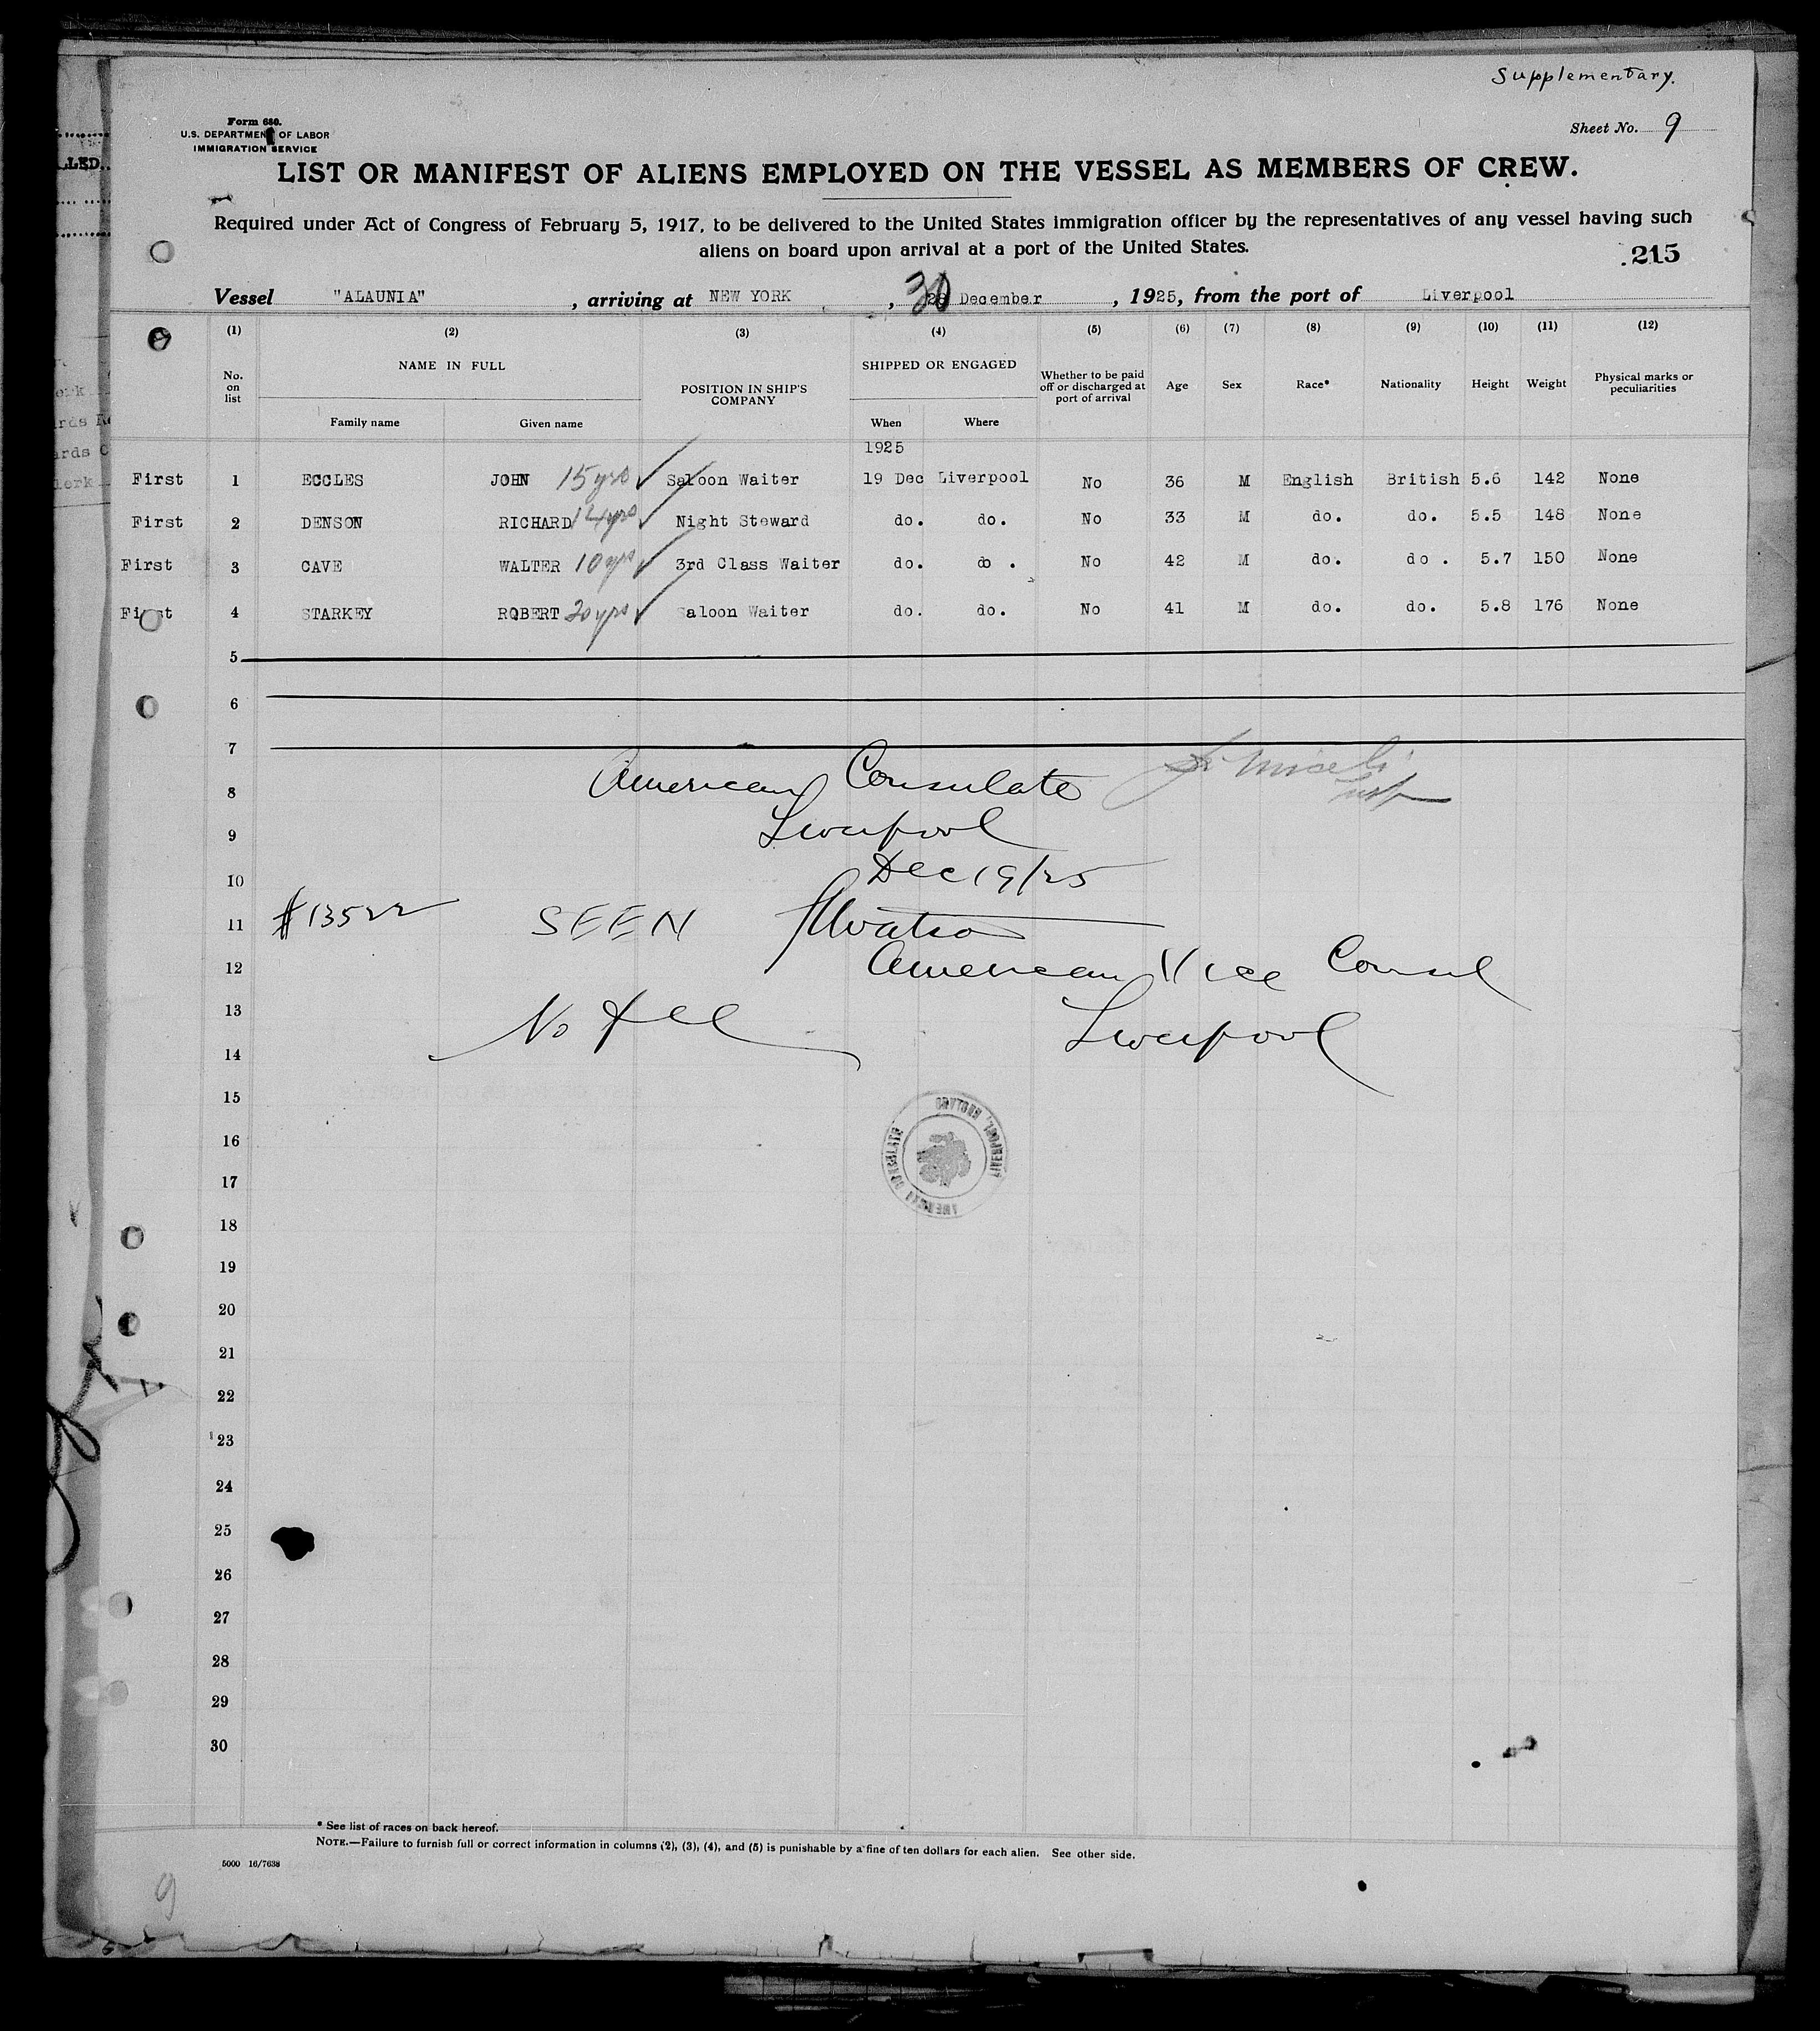 Supplementary.
Form 680.
U.S. DEPARTMENT OF LABOR
IMMIGRATION SERVICE
Sheet No. 9
LIST OR MANIFEST OF ALIENS EMPLOYED ON THE VESSEL AS MEMBERS OF CREW.
Required under Act of Congress of February 5, 1917, to be delivered to the United States immigration officer by the representatives of any vessel having such
aliens on board upon arrival at a port of the United States.
215
Vessel "ALAUNIA", arriving at NEW YORK, 30 December, 1925, from the port of Liverpool
(1) (2) (3) (4) (5) (6) (7) (8) (9) (10) (11) (12)
No. on list NAME IN FULL Family name Given name POSITION IN SHIP'S COMPANY SHIPPED OR ENGAGED When Where Whether to be paid off or discharged at port of arrival Age Sex Race* Nationality Height Weight Physical marks or peculiarities
1925
First 1 ECCLES JOHN 15 yrs Saloon Waiter 19 Dec Liverpool No 36 M English British 5.6 142 None
First 2 DENSON RICHARD 14 yrs Night Steward do. do. No 33 M do. do. 5.5 148 None
First 3 CAVE WALTER 10 yrs 3rd Class Waiter do. do . No 42 M do. do . 5.7 150 None
First 4 STARKEY ROBERT 20 yrs Saloon Waiter do. do. No 41 M do. do. 5.8 176 None
5
6
7
8 American Consulate
9 Liverpool
10 Dec 19/25
11 #13522 SEEN Watson
12 American Vice Consul
13 No fee Liverpool
14
15
AMERICAN CONSULATE LIVERPOOL, ENGLAND
16
17
18
19
20
21
22
23
24
25
26
27
28
29
30
* See list of races on back hereof.
NOTE.—Failure to furnish full or correct information in columns (2), (3), (4), and (5) is punishable by a fine of ten dollars for each alien. See other side.
5000 16/7638
9